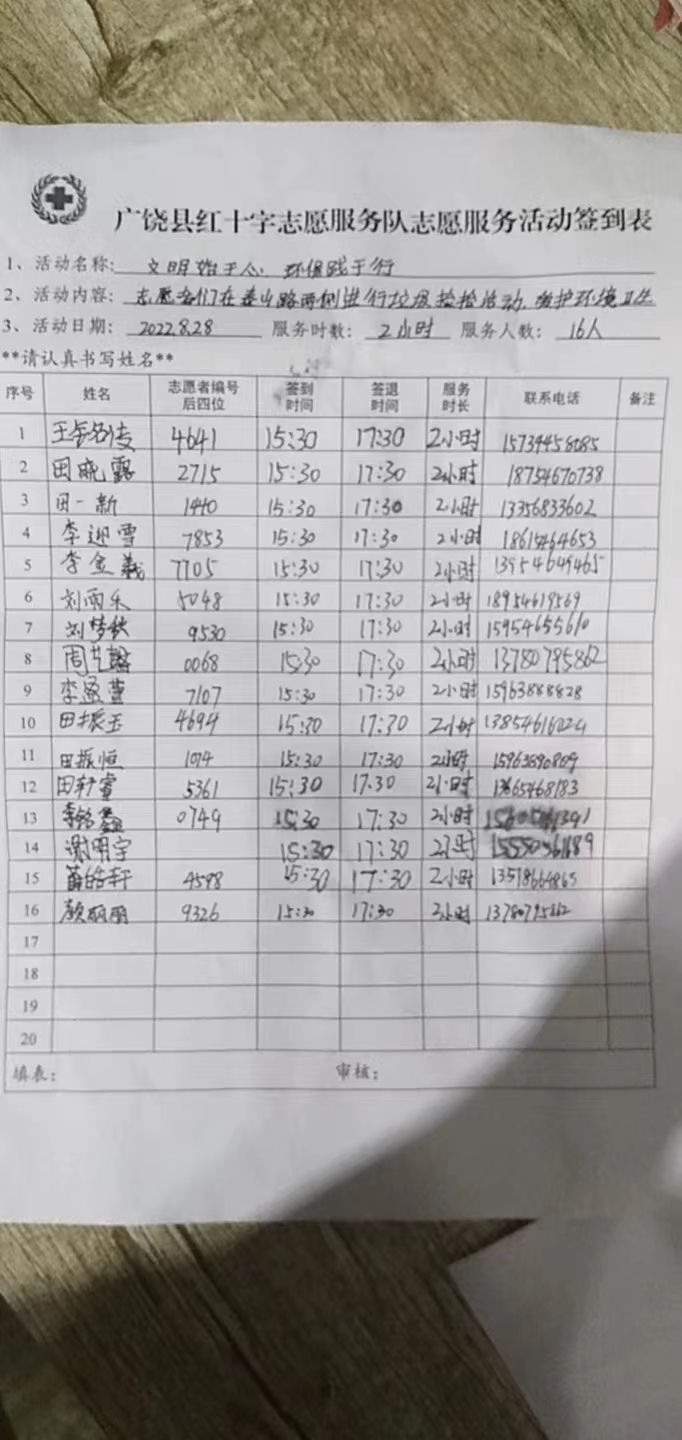 广饶县红十字志愿服务队志愿服务活动签到表
1、活动名称: 文明始于人心 环保践于行
2、活动内容: 志愿者们在孝山路两侧进行垃圾捡拾活动,维护环境卫生
3、活动日期: 2022.8.28 服务时数: 2小时 服务人数: 16人
**请认真书写姓名**
序号 姓名 志愿者编号后四位 签到时间 签退时间 服务时长 联系电话 备注
1 4641 15:30 17:30 2小时 15734458085
2 田晓露 2715 15:30 17:30 2小时 18754670738
3 田一新 1440 15:30 17:30 2小时 13356833602
4 李迎雪 7853 15:30 17:30 2小时 18615464653
5 李金羲 7705 15:30 17:30 2小时 13954649465
6 刘雨禾 5048 15:30 17:30 2小时 18954619569
7 刘梦轶 9530 15:30 17:30 2小时 15954655610
8 0068 15:30 17:30 2小时 13780795862
9 李盈萱 7107 15:30 17:30 2小时 15963888828
10 田振玉 4694 15:30 17:30 2小时
11 田振恒 1014 15:30 17:30 2小时 15963890809
12 田轩睿 5361 15:30 17:30 2小时
13 李铭鑫 0749 15:30 17:30 2小时
14 谢明宇 15:30 17:30 2小时
15 薛皓轩 4598 15:30 17:30 2小时 13518664865
16 颜丽丽 9326 15:30 17:30 2小时 13780795862
17
18
19
20
填表: 审核: